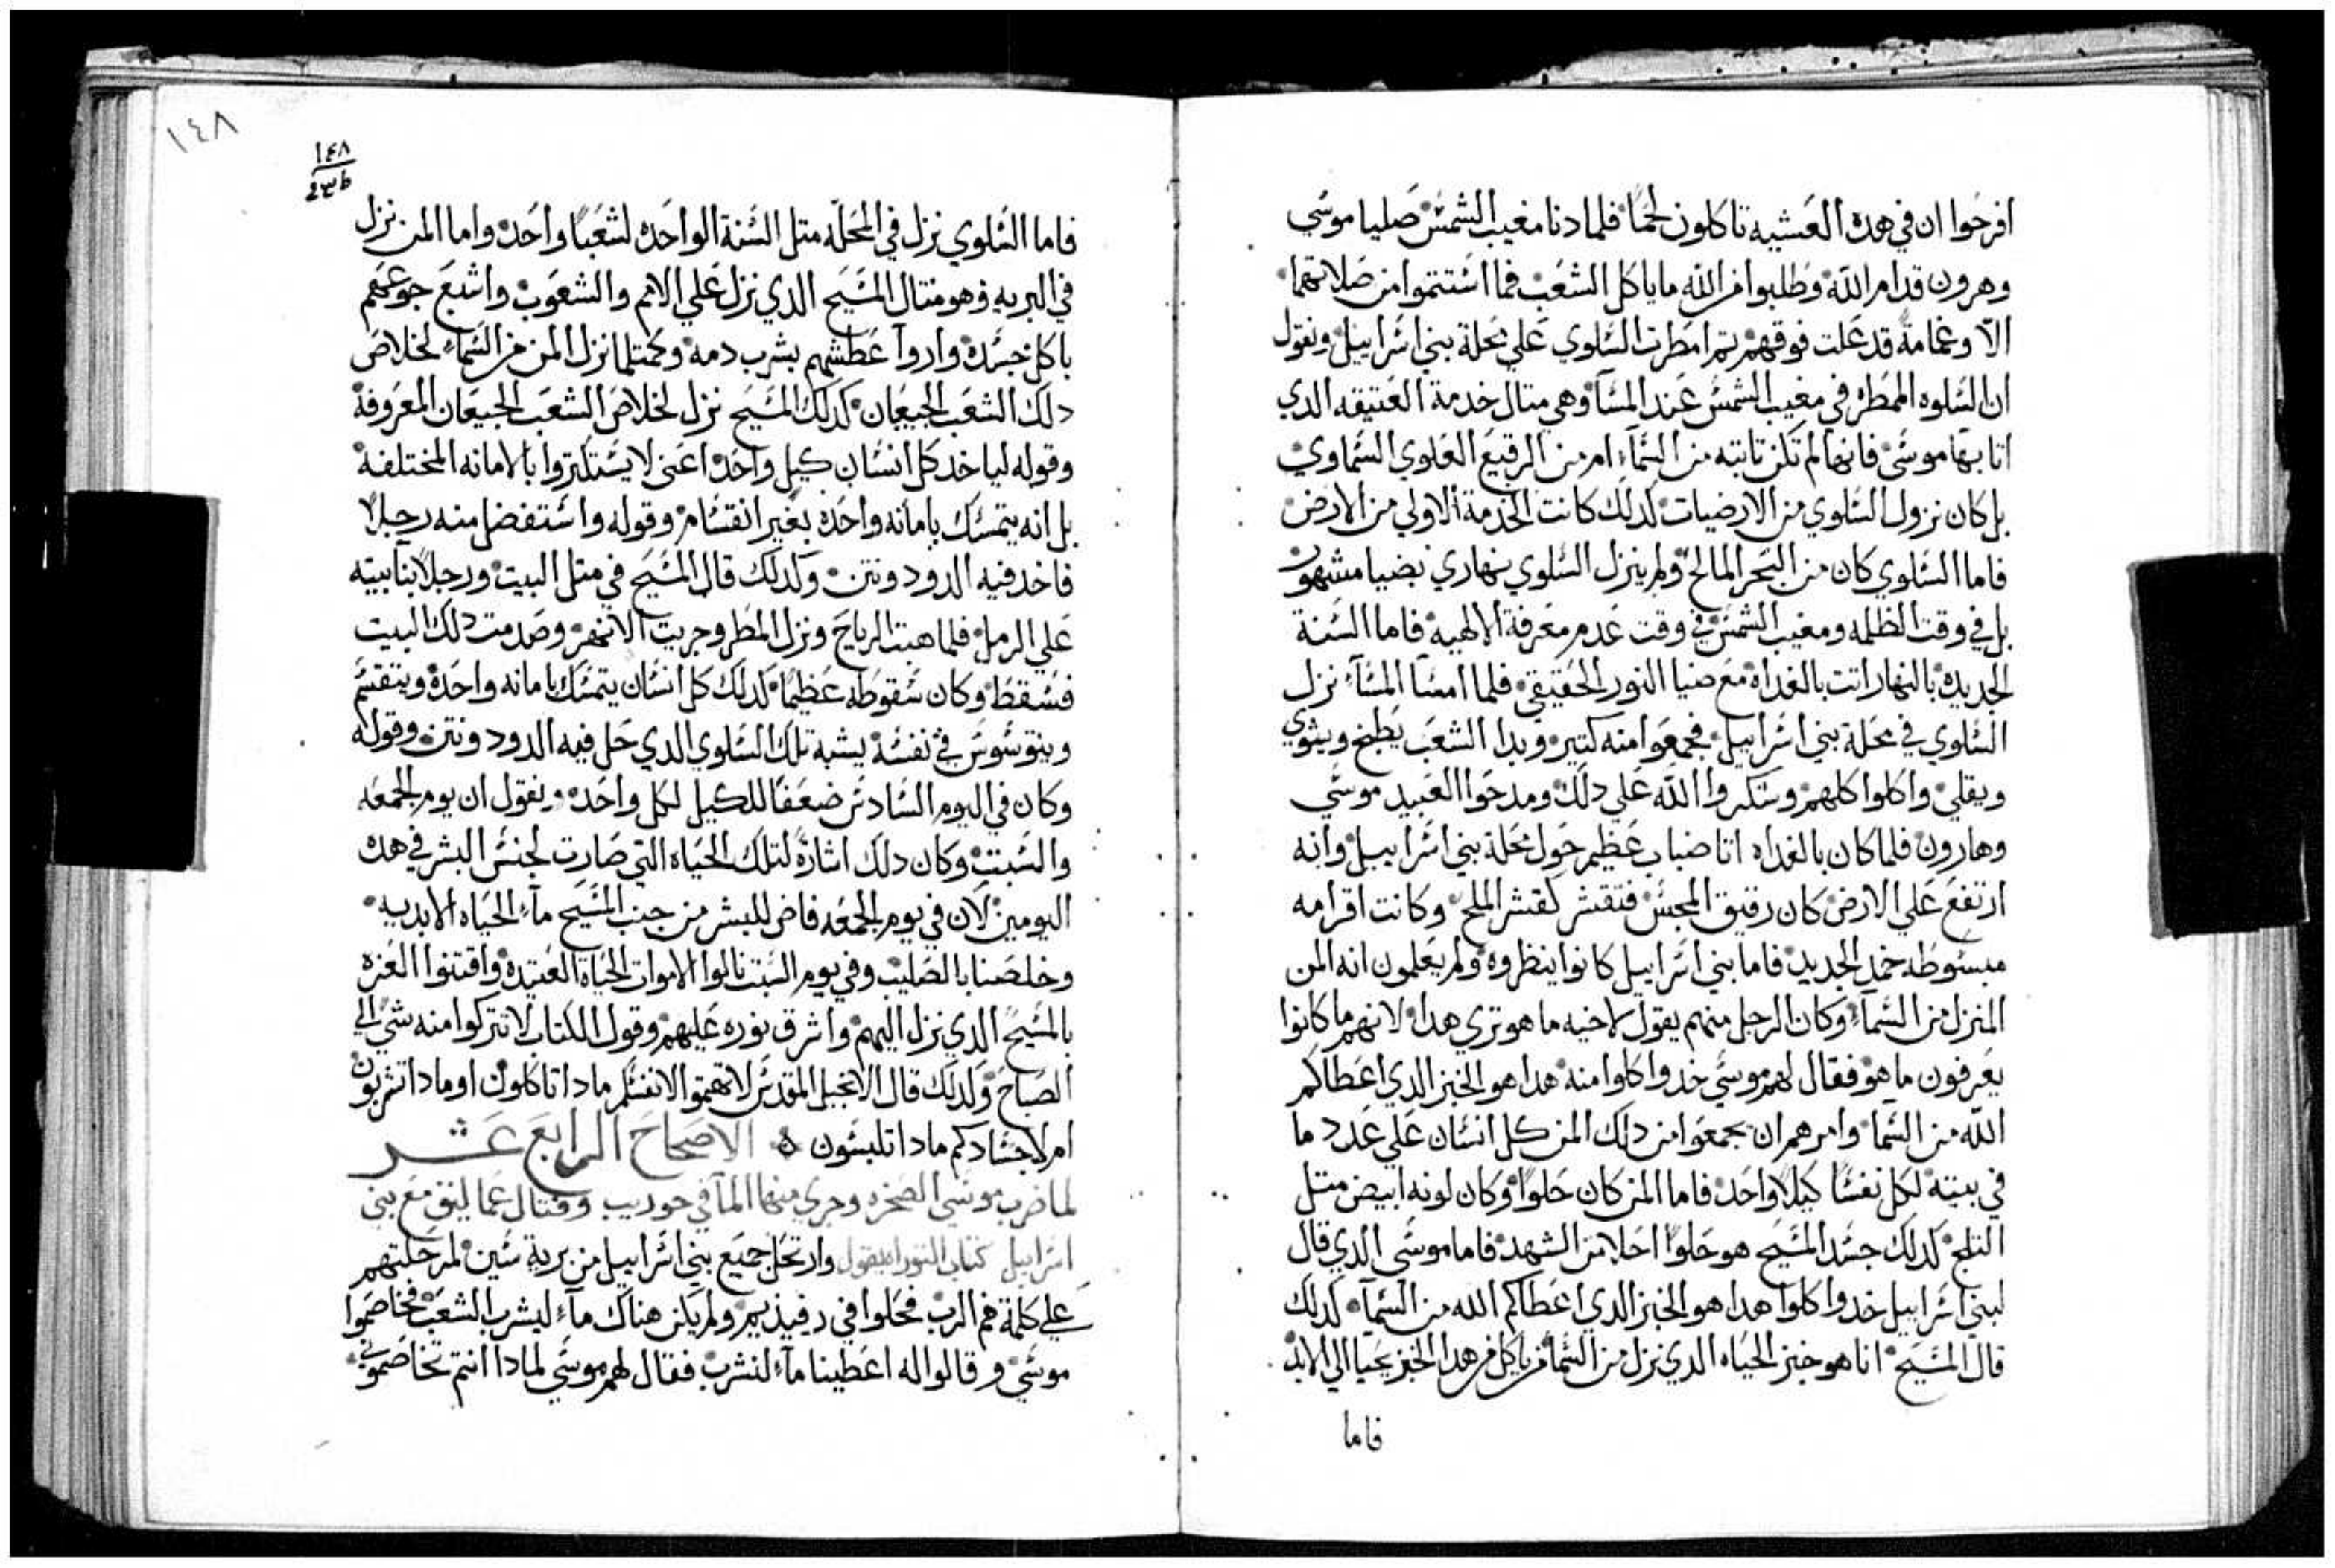 افرحوا ان في هده العشيه تاكلون لحمًا فلما دنا مغيب الشمس صليا موسي
وهرون قدام الله وطلبوا من الله ما ياكل الشعب فما استتموا من صلاتهما
الّا وغمامة قد علت فوقهم تم امطرت السلوي علي محلة بني اسراييل ونقول
ان السلوه الممطره في مغيب الشمس عند المسآ وهي متال خدمة العتيقه الدي
اتا بها موسي فانها لم تكن تابته من السمآء ام من الرقيع العلوي السماوي
بل كان نزول السلوي من الارضيات كدلك كانت الخدمة الاولي من الارض
فاما السلوي كان من البحر المالح ولم ينزل السلوي نهاري بضيا مشهور
بل في وقت الظلمه ومغيب الشمس في وقت عدم معرفة الالهيه فاما السنة
الجديده بالنهار اتت بالغداه مع ضيا النور الحقيقي فلما امسا المسآء نزل
السلوي في محلة بني اسراييل فجمعوا منه كتير وبدا الشعب يطبخ ويشوي
ويقلي واكلوا كلهم وشكروا الله علي دلك ومدحوا العبيد موسي
وهارون فلما كان بالغداه اتا ضباب عظيم حول محلة بني اسراييل وانه
ارتفع علي الارض كان رقيق المجس فتقشر كقشر الملح وكانت اقرامه
مبسوطه خمد الجديد فاما بني اسراييل كانوا ينظروه ولم يعلمون انه المن
المنزل من السمآء وكان الرجل منهم يقول لاخيه ما هو تري هدا لانهم ما كانوا
يعرفون ما هو فقال لهم موسي خدوا كلوا منه هدا هو الخبز الدي اعطاكم
الله من السما وامرهم ان يجمعوا من دلك المن كل انسان علي عدد ما
في بيته لكل نفسًا كيلًا واحد فاما المن كان حلوًا وكان لونه ابيض متل
التلج كدلك جسد المسيح هو حلوًا احلا من الشهد فاما موسي الدي قال
لبني اسراييل خدوا كلوا هدا هو الخبز الدي اعطاكم الله من السمآء كدلك
قال المسيح انا هو خبز الحياه الدي نزل من السما من ياكل من هدا الخبز يحيا الي الابد
فاما
١٤٨
١٤٨
فاما السلوي نزل في المحلة متل السنة الواحده لشعبًا واحد واما المن نزل
في البريه وهو متال المسيح الدي نزل علي الامم والشعوب واشبع جوعهم
باكل جسده واروا عطشهم بشرب دمه وكمتلما نزل المن من السمآء لخلاص
دلك الشعب الجيعان كدلك المسيح نزل لخلاص الشعب الجيعان المعروفة
وقوله لياخد كل انسان كيل واحد اعني لا يستكتروا بالامانه المختلفة
بل انه يتمسك بامانه واحده بغير انقسام وقوله واستفضل منه رجلًا
فاخد فيه الدود ونتن وكدلك قال المسيح في متل البيت ورجلًا بنا بيته
علي الرمل فلما هبت الرياح ونزل المطر وجريت الانهر وصدمت دلك البيت
فسقط وكان سقوطه عظيمًا كدلك كل انسان يتمسك بامانه واحده وينقسم
ويتوسوس في نفسه يشبه تلك السلوي الدي حل فيه الدود ونتن وقوله
وكان في اليوم السادس ضعفًا للكيل لكل واحد ونقول ان يوم الجمعه
والسبت وكان دلك اشارة لتلك الحياه التي صارت لجنس البشر في هده
اليومين لان في يوم الجمعه فاض للبشر من جنب المسيح مآء الحياه الابديه
وخلصنا بالصليب وفي يوم السبت نالوا الاموات الحياة العتيده واقتنوا العزه
بالمسيح الدي نزل اليهم واشرق نوره عليهم وقول الكتاب لا تتركوا منه شي الي
الصباح وكدلك قال الانجيل المقدس لا تهتموا لانفسكم مادا تاكلون او مادا تشربون
ام لاجسادكم مادا تلبسون الاصحاح الرابع عشر
لما ضرب موسي الصخره وجري منها المآ في حوريب وقتال عماليق مع بني
اسراييل كتاب التوراه يقول وارتحل جميع بني اسراييل من برية سين لمرحلتهم
علي كلمة فم الرب فحلوا في رفيذيم ولم يكن هناك مآء ليشرب الشعب فخاصموا
موسي وقالوا له اعطينا مآء لنشرب فقال لهم موسي لمادا انتم تخاصموني